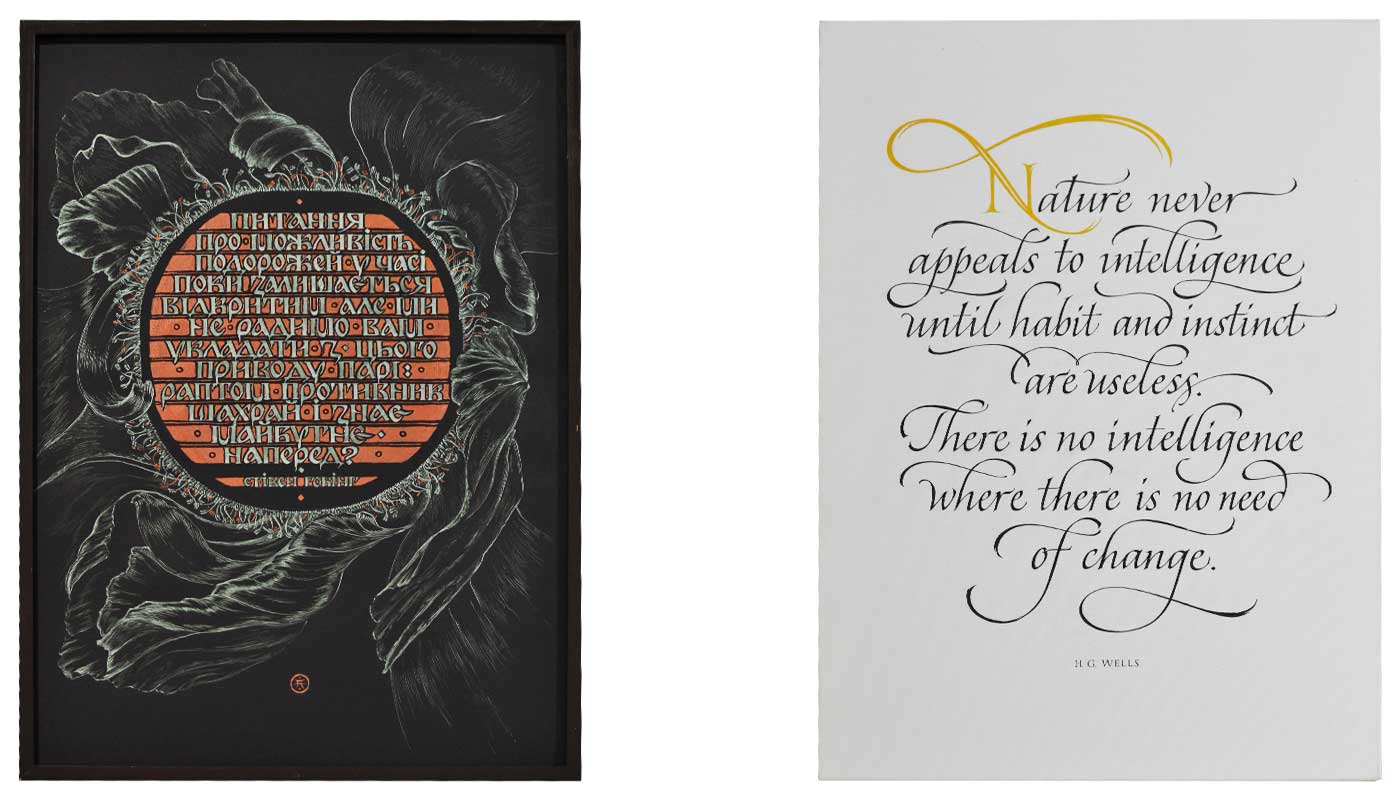 ПИТАННЯ
ПРО МОЖЛИВІСТЬ
ПОДОРОЖЕЙ У ЧАСІ
ПОКИ ЗАЛИШАЄТЬСЯ
ВІДКРИТИМ · АЛЕ МИ
· НЕ РАДИМО ВАМ ·
УКЛАДАТИ З · ЦЬОГО
ПРИВОДУ ПАРІ:
РАПТОМ ПРОТИВНИК
ШАХРАЙ І ЗНАЄ
МАЙБУТНЄ ·
НАПЕРЕД?
СТІВЕН ГОКІНГ
Nature never
appeals to intelligence
until habit and instinct
are useless.
There is no intelligence
where there is no need
of change.
H. G. WELLS